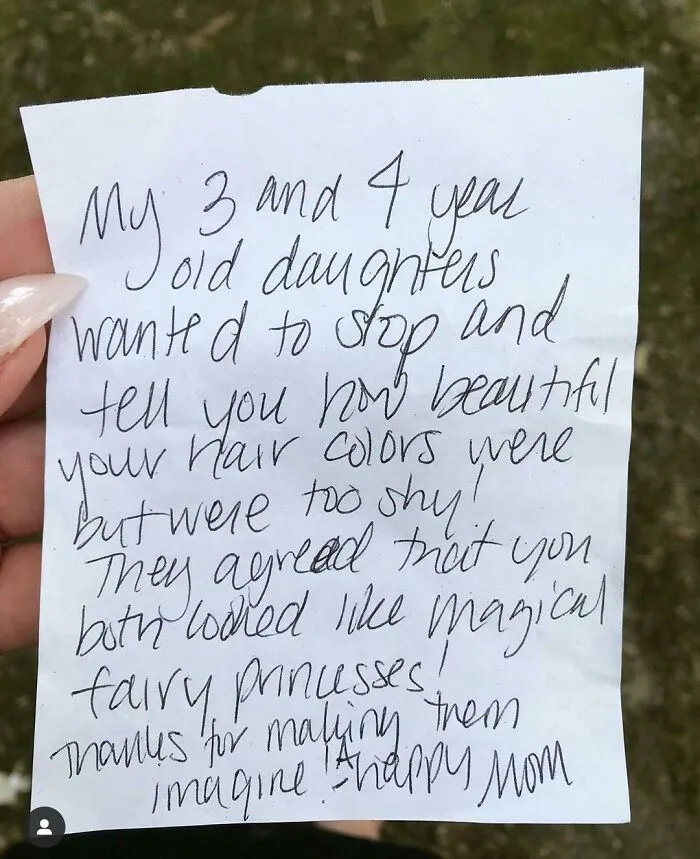 My 3 and 4 year
old daughters
wanted to stop and
tell you how beautiful
your hair colors were
but were too shy!
They agreed that you
both looked like magical
fairy princesses!
Thanks for making them
imagine! -A happy Mom